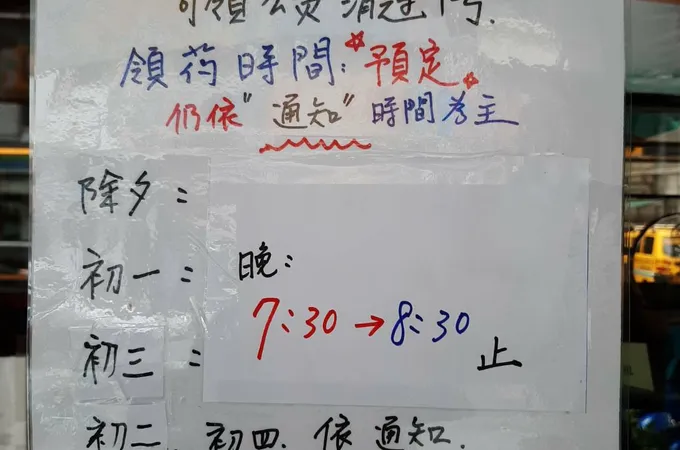 可領公費清冠1号.
領药時間:*預定*
仍依"通知"時間為主
除夕=
初一= 晚:
7:30→8:30
初三= 止
初二、初四.依通知.